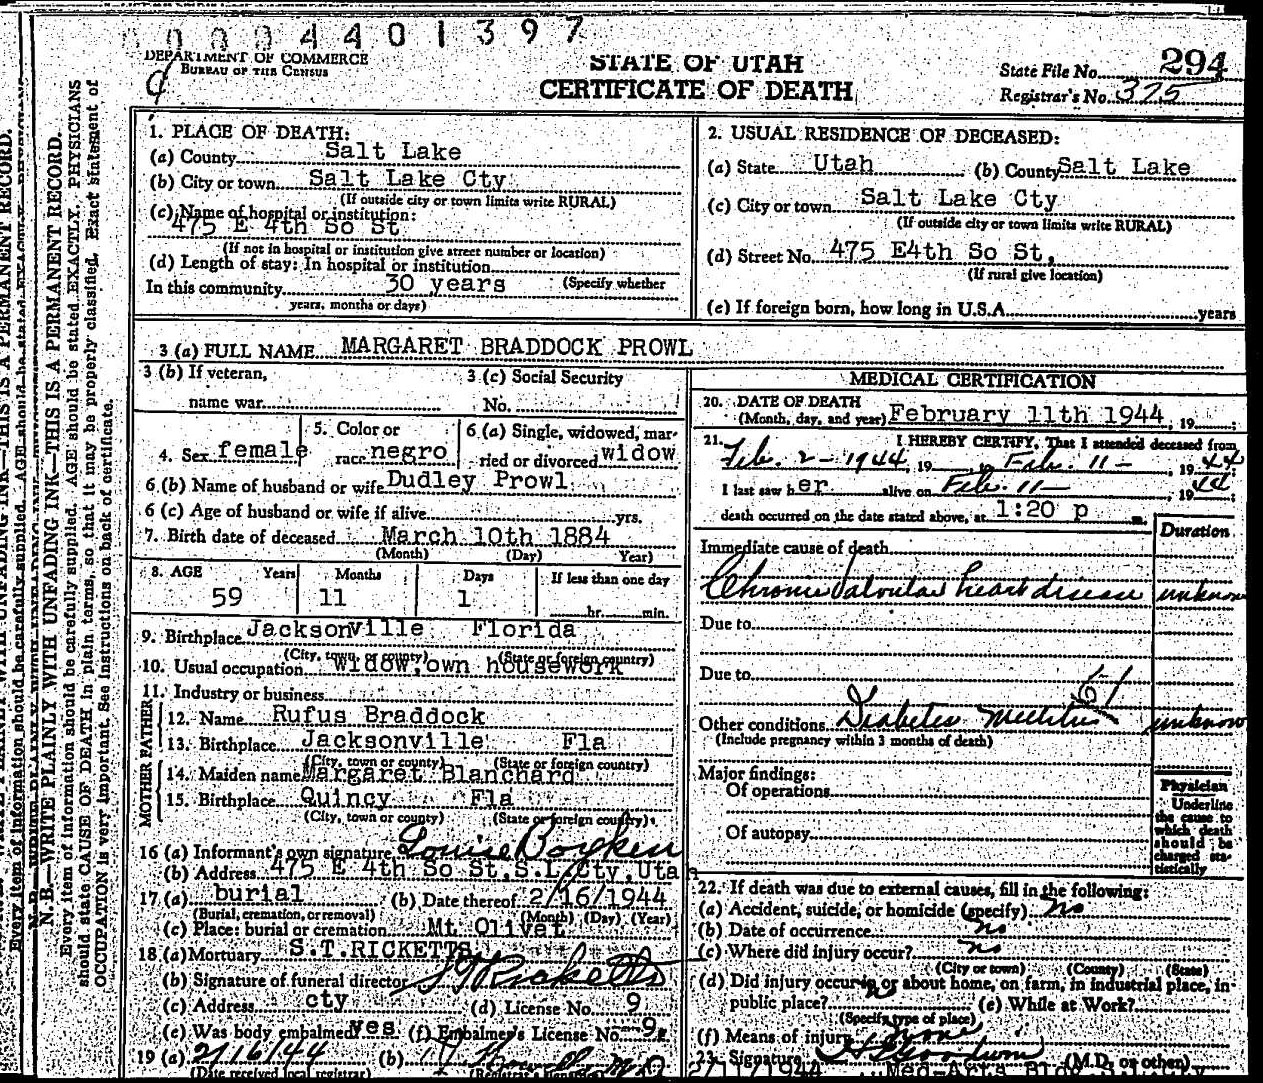 0004401397
DEPARTMENT OF COMMERCE
BUREAU OF THE CENSUS
STATE OF UTAH
CERTIFICATE OF DEATH
State File No. 294
Registrar's No. 375
N. B.—WRITE PLAINLY WITH UNFADING INK—THIS IS A PERMANENT RECORD.
Every item of information should be carefully supplied. AGE should be stated EXACTLY. PHYSICIANS
should state CAUSE OF DEATH in plain terms, so that it may be properly classified. Exact statement of
OCCUPATION is very important. See instructions on back of certificate.
1. PLACE OF DEATH:
(a) County Salt Lake
(b) City or town Salt Lake Cty
(If outside city or town limits write RURAL)
(c) Name of hospital or institution:
475 E 4th So St
(If not in hospital or institution give street number or location)
(d) Length of stay: In hospital or institution
In this community 30 years (Specify whether
years, months or days)
2. USUAL RESIDENCE OF DECEASED:
(a) State Utah (b) County Salt Lake
(c) City or town Salt Lake Cty
(If outside city or town limits write RURAL)
(d) Street No. 475 E4th So St.
(If rural give location)
(e) If foreign born, how long in U.S.A. years
3 (a) FULL NAME MARGARET BRADDOCK PROWL
3 (b) If veteran,
name war
3 (c) Social Security
No.
4. Sex female
5. Color or
race negro
6 (a) Single, widowed, mar-
ried or divorced widow
6 (b) Name of husband or wife Dudley Prowl
6 (c) Age of husband or wife if alive yrs.
7. Birth date of deceased March 10th 1884
(Month) (Day) Year)
8. AGE Years Months Days If less than one day
59 11 1 hr. min.
9. Birthplace Jacksonville Florida
(City, town or county) (State or foreign country)
10. Usual occupation widow, own housework
11. Industry or business
FATHER
12. Name Rufus Braddock
13. Birthplace Jacksonville Fla
(City, town or county) (State or foreign country)
MOTHER
14. Maiden name Margaret Blanchard
15. Birthplace Quincy Fla
(City, town or county) (State or foreign country)
16 (a) Informant's own signature Louise Boyken
(b) Address 475 E 4th So St, S.L.Cty, Utah
17 (a) burial (b) Date thereof 2/16/1944
(Burial, cremation, or removal) (Month) (Day) (Year)
(c) Place: burial or cremation Mt Olivet
18 (a) Mortuary S.T. RICKETTS
(b) Signature of funeral director S T Ricketts
(c) Address cty (d) License No. 9
(e) Was body embalmed yes (f) Embalmer's License No. 9
19 (a) 2/16/44 (b) M.D.
(Date received local registrar) (Registrar's signature)
MEDICAL CERTIFICATION
20. DATE OF DEATH
(Month, day, and year) February 11th 1944, 19 ;
21. I HEREBY CERTIFY, That I attended deceased from
Feb. 2 - 1944, 19 , to Feb. 11 - , 19 44
I last saw h er alive on Feb. 11 - , 19 44;
death occurred on the date stated above, at 1:20 p m.
Duration
Immediate cause of death
Chronic Valvular heart disease unknown
Due to
Due to
61
Other conditions Diabetes Mellitus unknown
(Include pregnancy within 3 months of death)
Major findings:
Of operations
Of autopsy
Physician
Underline
the cause to
which death
should be
charged sta-
tistically
22. If death was due to external causes, fill in the following:
(a) Accident, suicide, or homicide (specify) No
(b) Date of occurrence no
(c) Where did injury occur? no
(City or town) (County) (State)
(d) Did injury occur in or about home, on farm, in industrial place, in
public place? no (e) While at Work?
(Specify type of place)
(f) Means of injury
23. Signature Goodwin (M.D. or other)
2/11/1944 Med-Arts Bldg